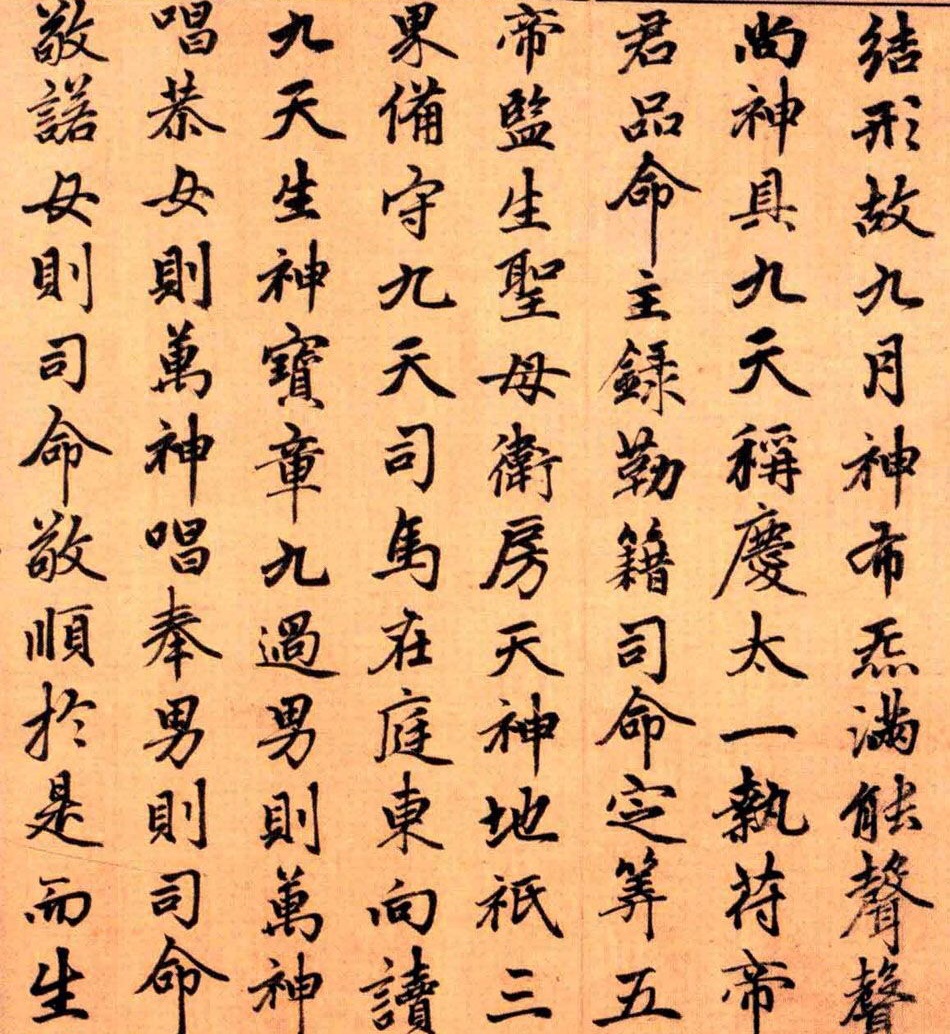 結形故九月神布炁滿能聲聲
尚神具九天稱慶太一執苻帝
君品命主錄勒籍司命定筭五
帝監生聖母衛房天神地祇三
果備守九天司馬在庭東向讀
九天生神寶章九過男則萬神
唱恭女則萬神唱奉男則司命
敬諾女則司命敬順於是而生